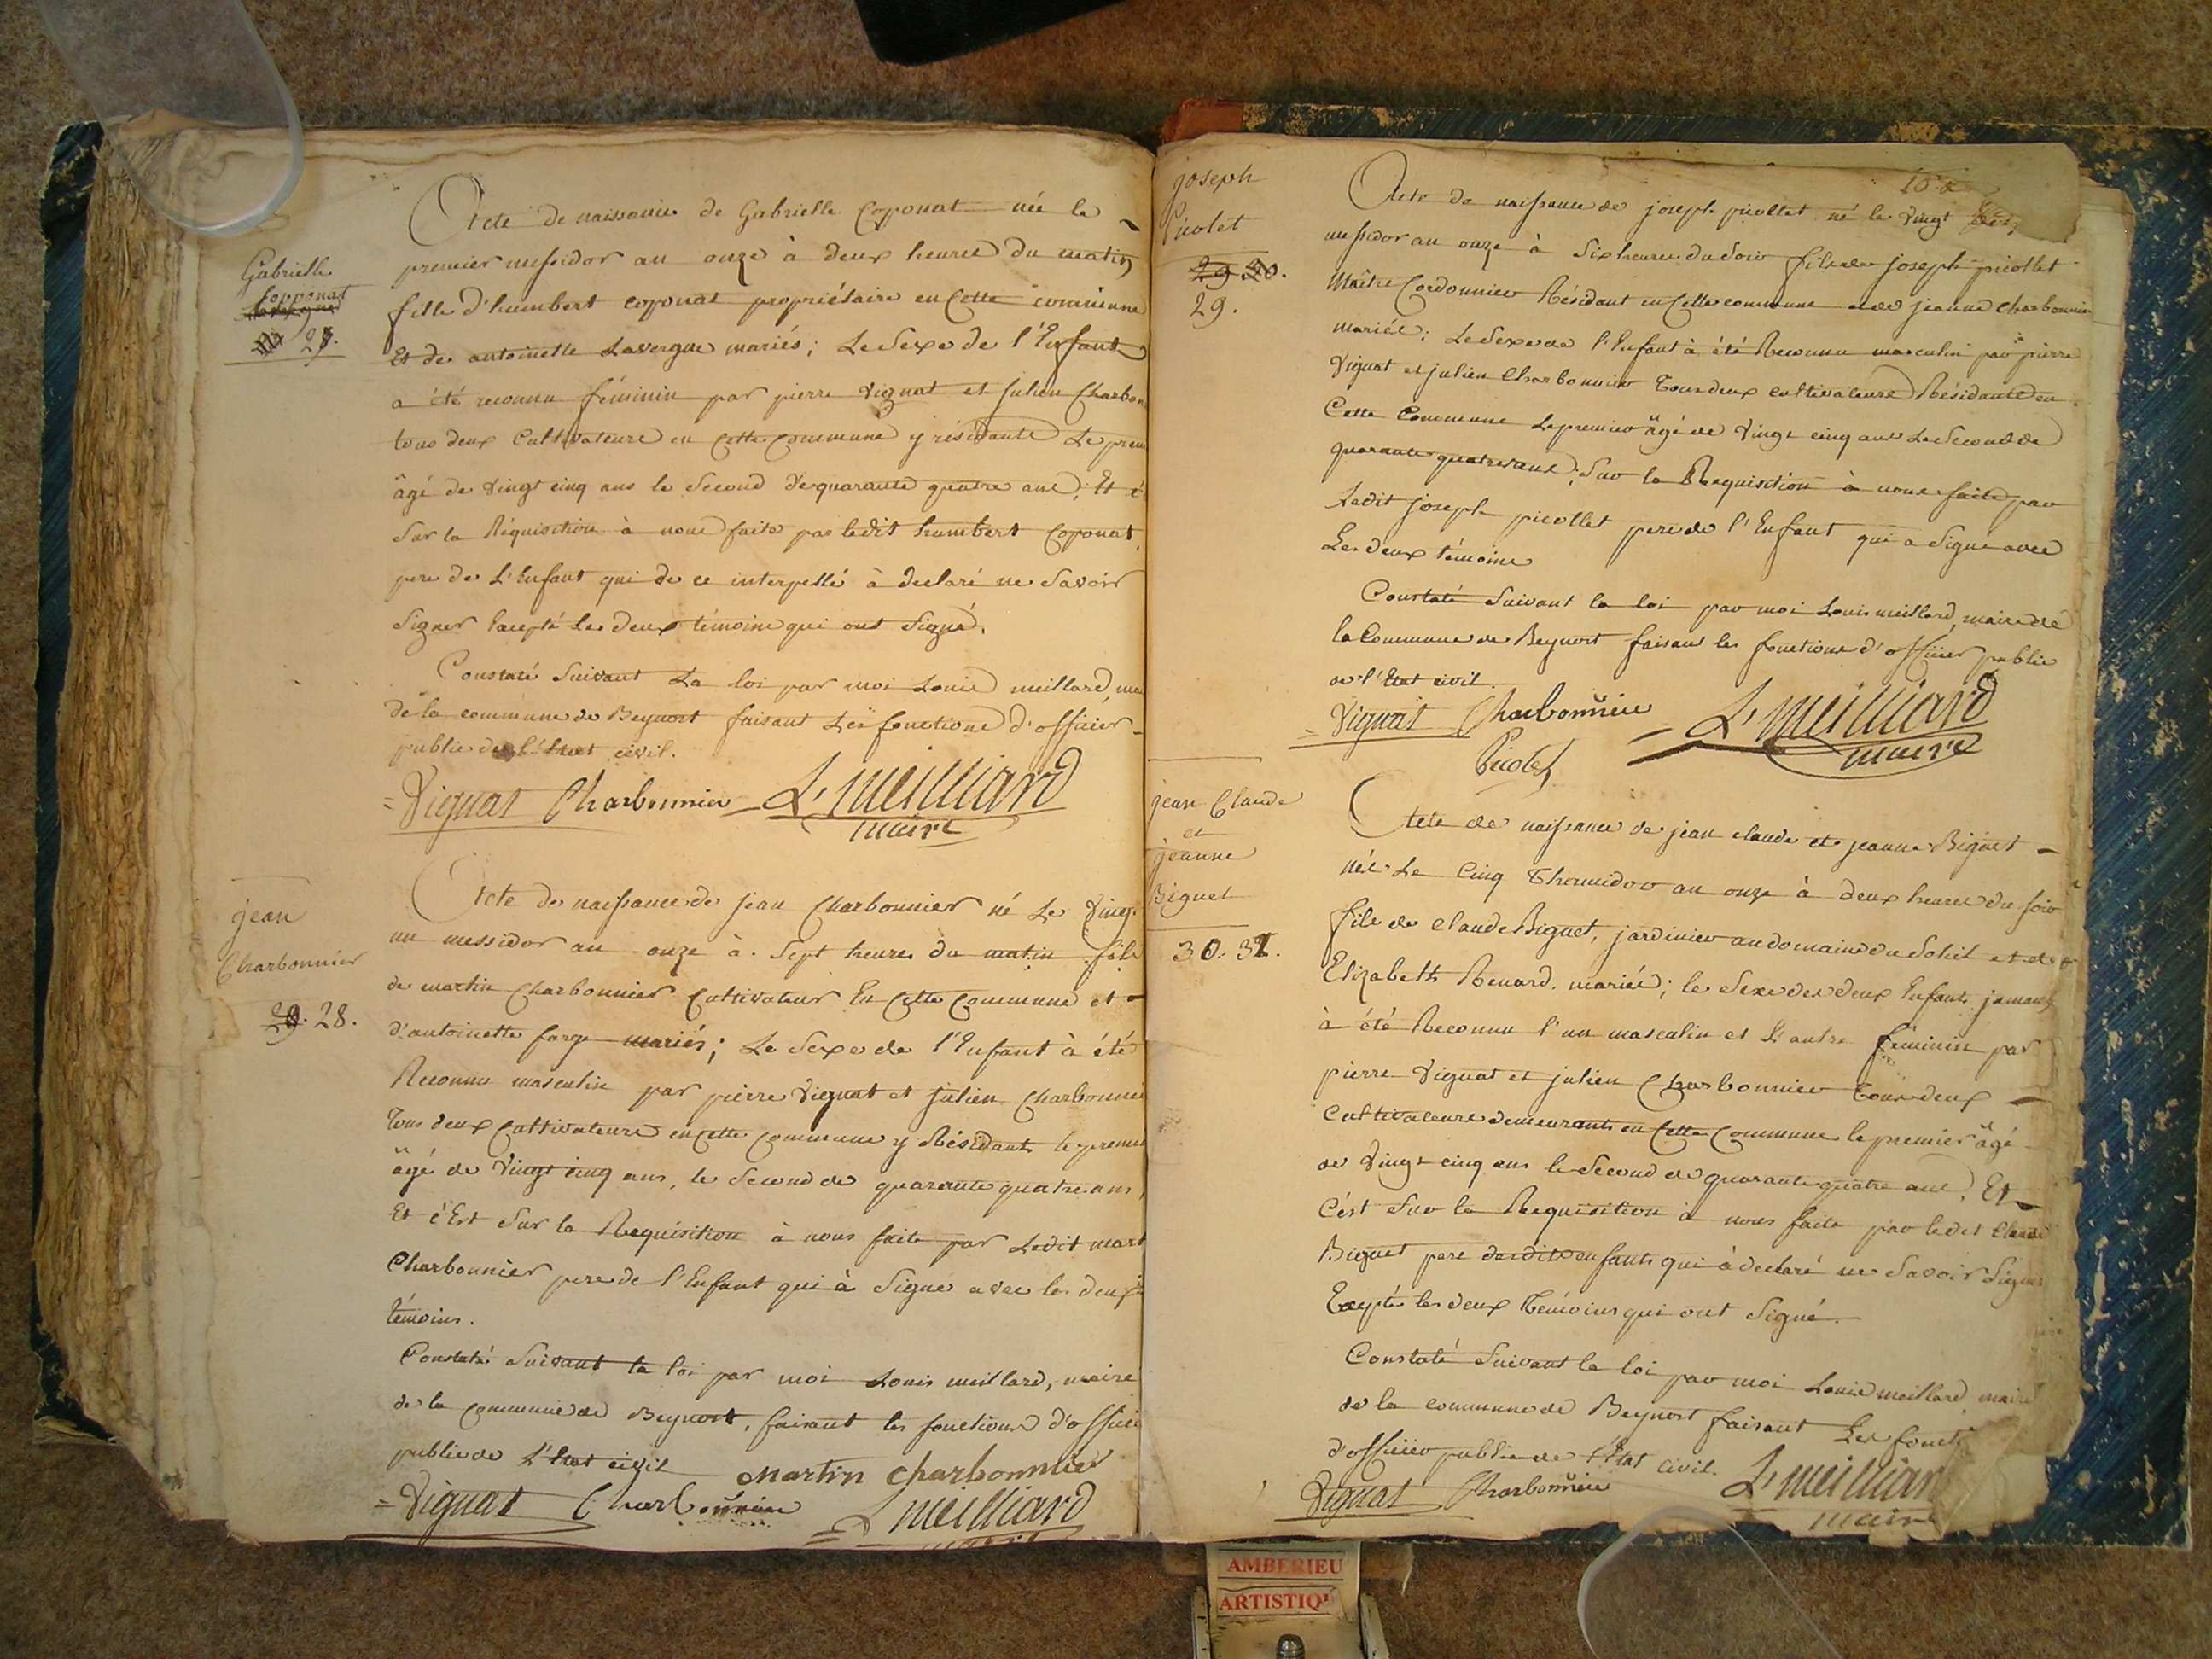 Gabrielle
Copponat
27.
Acte de naissance de Gabrielle Coponat née le
premier messidor an onze à deux heures du matin
fille d'humbert coponat propriétaire en Cette commune
Et de antoinette Lavergne mariés; Le Sexe de l'Enfant
a été reconnu féminin par pierre Vignat et julien Charbon
tous deux Cultivateurs en Cette Commune y résidants Le prem
âgé de vingt cinq ans le Second de quarante quatre ans, Et c
Sur la Réquisition à nous faite par ledit humbert Coponat,
pere de L'Enfant qui de ce interpellé à declaré ne Savoir
Signer Excepté Les deux témoins qui ont Signé.
Constaté Suivant La loi par moi Louis meillard, mai
de la commune de Beynost faisant Les fonctions d'officier
public de l'état civil.
Vignat Charbonnier L. Meilliard
maire
jean
Charbonnier
29. 28.
Acte de naissance de jean Charbonnier né Le Vingt
un messidor an onze à Sept heures du matin fils
de martin Charbonnier Cultivateur En Cette Commune et
d'antoinette farge mariés; Le Sexe de l'Enfant à été
Reconnu masculin par pierre Vignat et julien Charbonnie
Tous deux Cultivateurs en Cette Commune y Résidants le premie
âgé de Vingt cinq ans, le Second de quarante quatre ans,
Et c'Est Sur la Requisition à nous faite par Ledit mart
Charbonnier pere de l'Enfant qui à Signé avec les deux
témoins.
Constaté Suivant la loi par moi Louis meillard, maire
de la Commune de Beynost, faisant les fonctions d'officie
public de L'état civil Martin Charbonnier
Vignat Charbonnier L. Meilliard
joseph
Picolet
29.
Acte de naissance de joseph picollet né le vingt
messidor an onze à Six heures du Soir fils de joseph picollet
Maître Cordonnier Résidant en Cette commune et de jeanne Charbonnier
mariés; Le Sexe de l'Enfant à été Reconnu masculin par pierre
Vignat et julien Charbonnier Tous deux cultivateurs Résidants en
Cette Commune Le premier âgé de Vingt cinq ans Le Second de
quarante quatre ans; Sur la Requisition à nous faite par
Ledit joseph picollet pere de l'Enfant qui a Signé avec
Les deux témoins
Constaté Suivant la loi par moi Louis meillard, maire de
la Commune de Beynost faisant les fonctions d'officier public
de l'état civil.
Vignat Charbonnier L. Meilliard
Picolet maire
jean Claude
et
jeanne
Biguet
30. 31.
Acte de naissance de jean claude et jeanne Biguet
nés Le Cinq Thermidor an onze à deux heures du soir
fils de Claude Biguet, jardinier au domaine du Soleil et de
Elizabeth Renard, mariés; le Sexe des deux Enfants jumeaux
à été Reconnu l'un masculin et L'autre féminin par
pierre Vignat et julien Charbonnier Tous deux
Cultivateurs demeurants en Cette Commune le premier âgé
de Vingt cinq ans le Second de quarante quatre ans. Et
C'est Sur la Requisition à nous faite par ledit Claude
Biguet pere desdits enfants qui à declaré ne Savoir Signer
Excepté les deux Témoins qui ont Signé.
Constaté Suivant la loi par moi Louis meillard, maire
de la commune de Beynost faisant Les foncti
d'officier public de l'état civil.
Vignat Charbonnier L. Meilliar
mair
AMBERIEU
ARTISTIQ